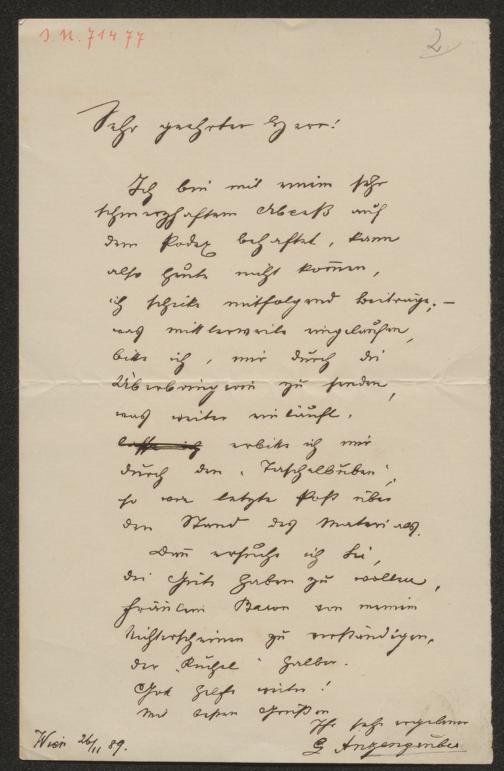 J. N. 71477
2
Sehr geehrter Herr!
Ich bin mit einem sehr
schmerzhaftem Abceß auf
dem Podex behaftet, kann
also heute nicht kom̅en,
ich schicke mitfolgend Beiträge; –
was mittlerweile eingelaufen,
bitte ich, mir durch die
Überbringerin zu senden,
was weiter einläuft,
lasse ich erbitte ich mir
durch den „Taschelbuben“,
so wie letzte Post über
den Stand des Materials.
Dan̅ ersuche ich Sie,
die Güte haben zu wollen,
Fräulein Baron von meinem
Nichterscheinen zu verständigen,
der „Kuchel“ halber.
Gott helfe weiter!
Mit besten Grüßen
Ihr sehr ergebener
L Anzengruber
Wien 26/11 89.